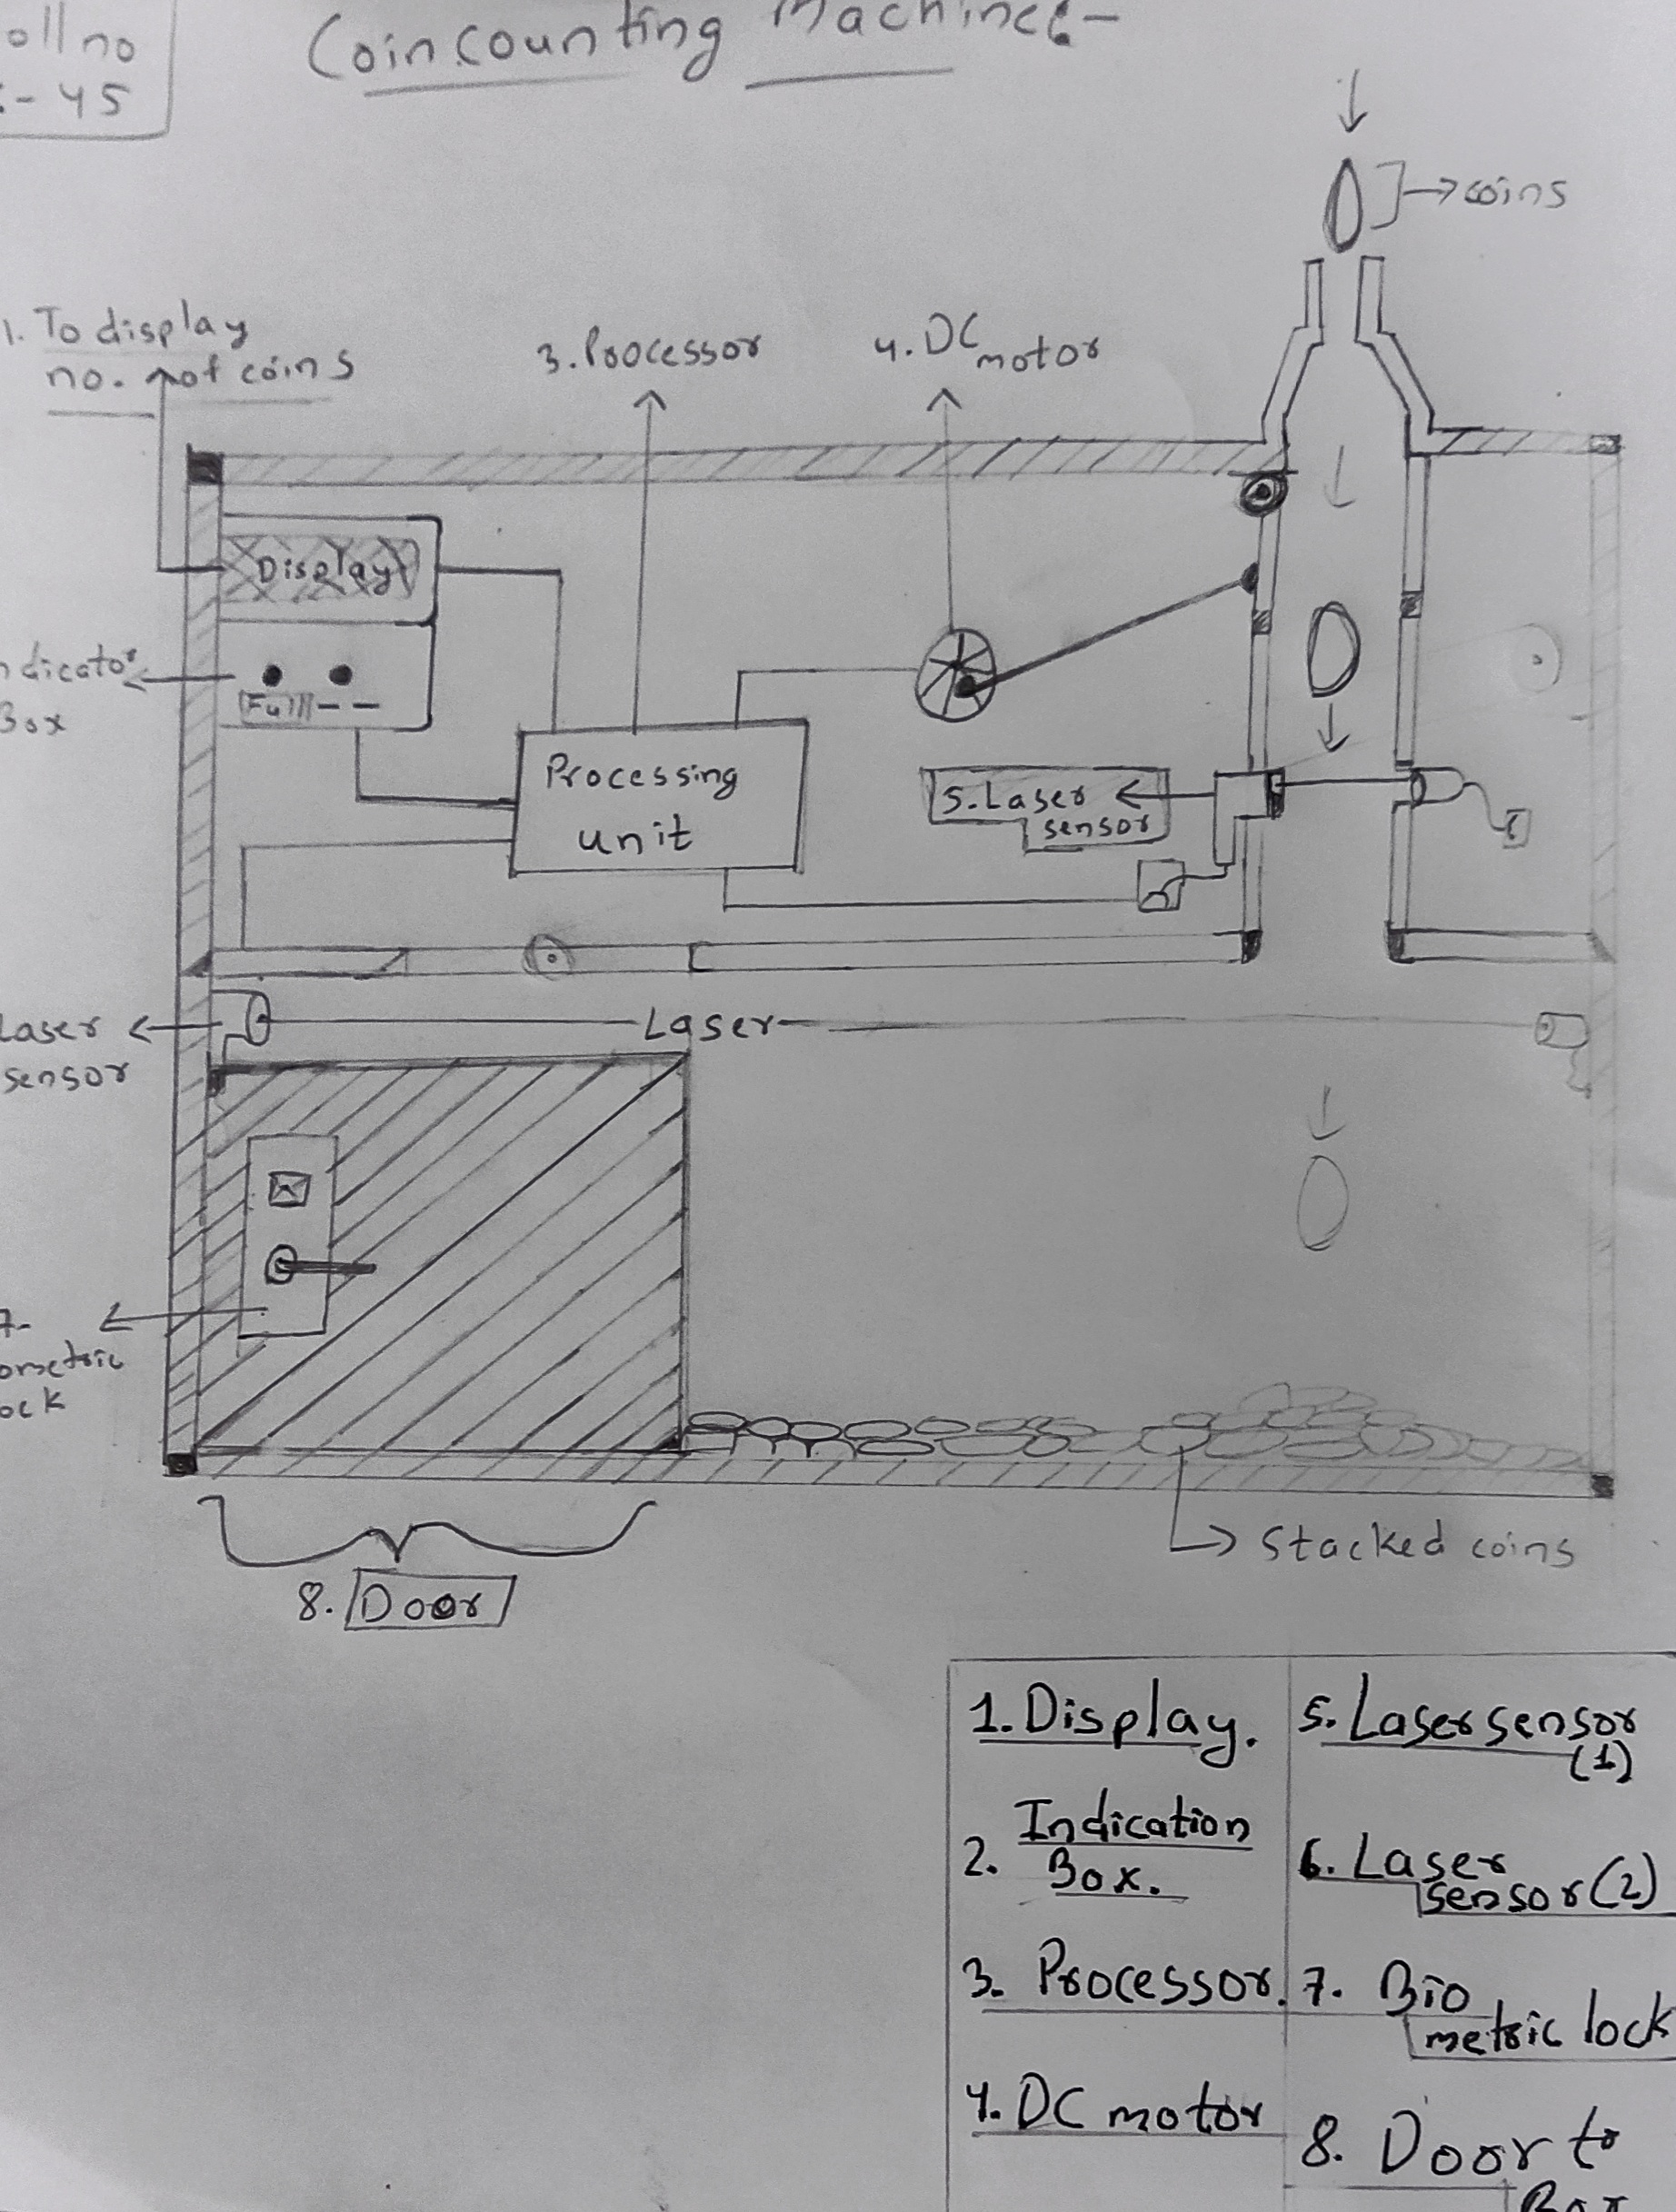 oll no
:- 45
Coin counting Machine:-
coins
1. To display
no. of coins
3. Processor
4. DC motor
Display
ndicator
Box
Full -- 
Processing
unit
5. Laser
sensor
Laser
sensor
Laser
7-
ometric
ock
Stacked coins
8. Door
1. Display.
2. Indication
Box.
3. Processor.
4. DC motor
5. Laser sensor
(1)
6. Laser
sensor (2)
7. Bio
metric lock
8. Door to